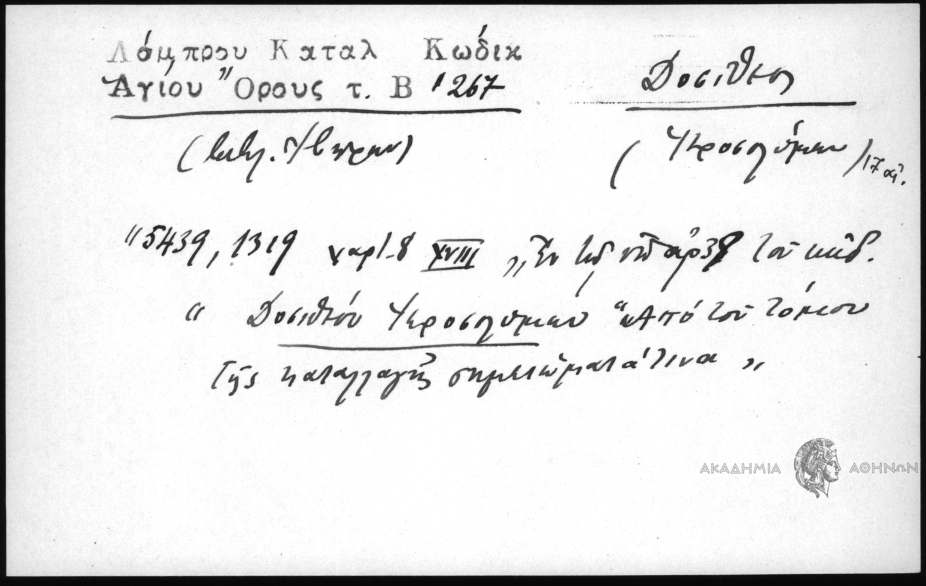 Λάμπρου Καταλ Κωδικ
Ἁγίου Ὄρους τ. Β 267
Δοσίθεος
(Βιβλ. Ἰβήρων)
(Ἱεροσολύμων) 17 αἰ.
"5439, 1319 χαρτ. 8 XVIII „Ἐν τῇ τοῦ κώδ.
" Δοσιθέου Ἱεροσολύμων "Ἀπό τοῦ τόμου
τῆς καταλλαγῆς σημειώματά τινα „
ΑΚΑΔΗΜΙΑ ΑΘΗΝΩΝ